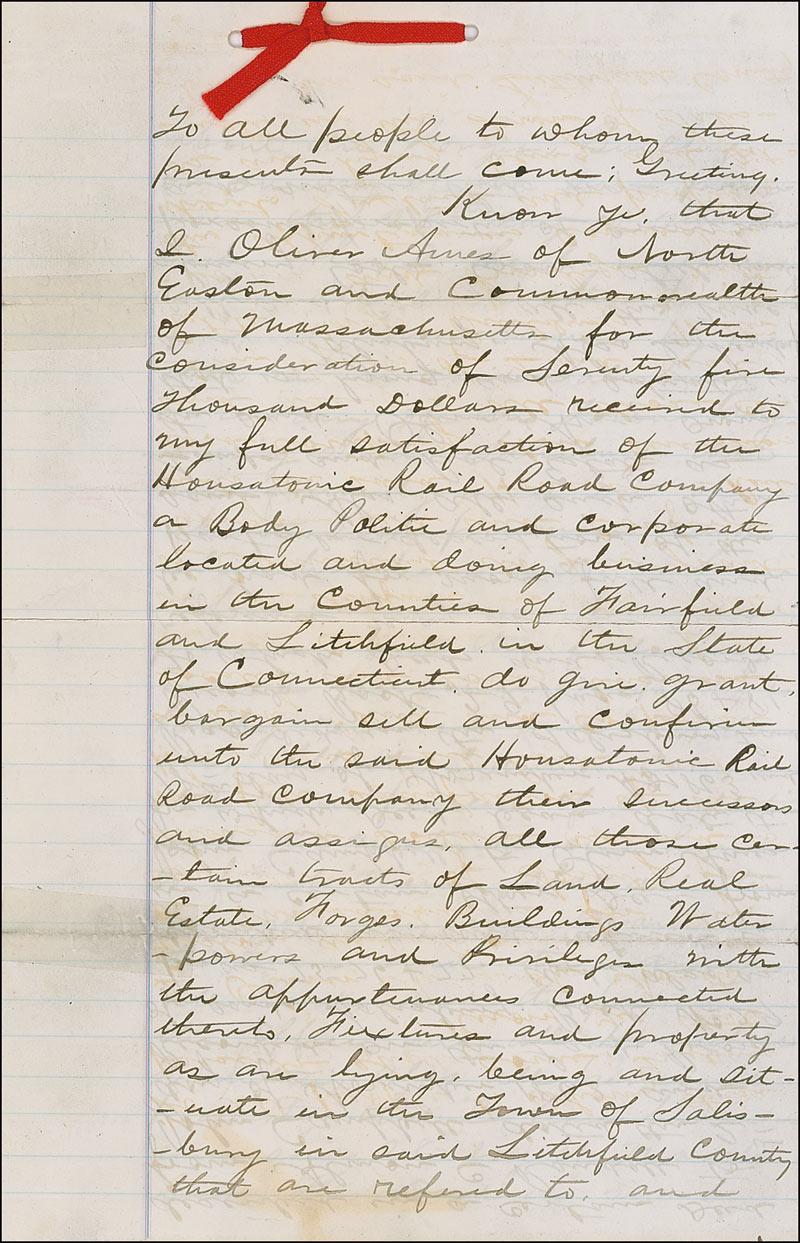 To all people to whom these
presents shall come; Greeting.
Know ye, that
I. Oliver Ames of North
Easton and Commonwealth
of Massachusetts for the
consideration of Seventy five
Thousand Dollars received to
my full satisfaction of the
Housatonic Rail Road Company
a Body Politic and corporate
located and doing business
in the Counties of Fairfield
and Litchfield in the State
of Connecticut. do give. grant,
bargain sell and confirm
unto the said Housatonic Rail
Road Company their successors
and assigns, all those cer-
-tain tracts of Land, Real
Estate, Forges. Buildings Water
-powers and Privileges with
the appurtenances connected
thereto, Fixtures and property
as are lying, being and sit-
-uate in the Town of Salis-
-bury in said Litchfield County
that are refered to, and